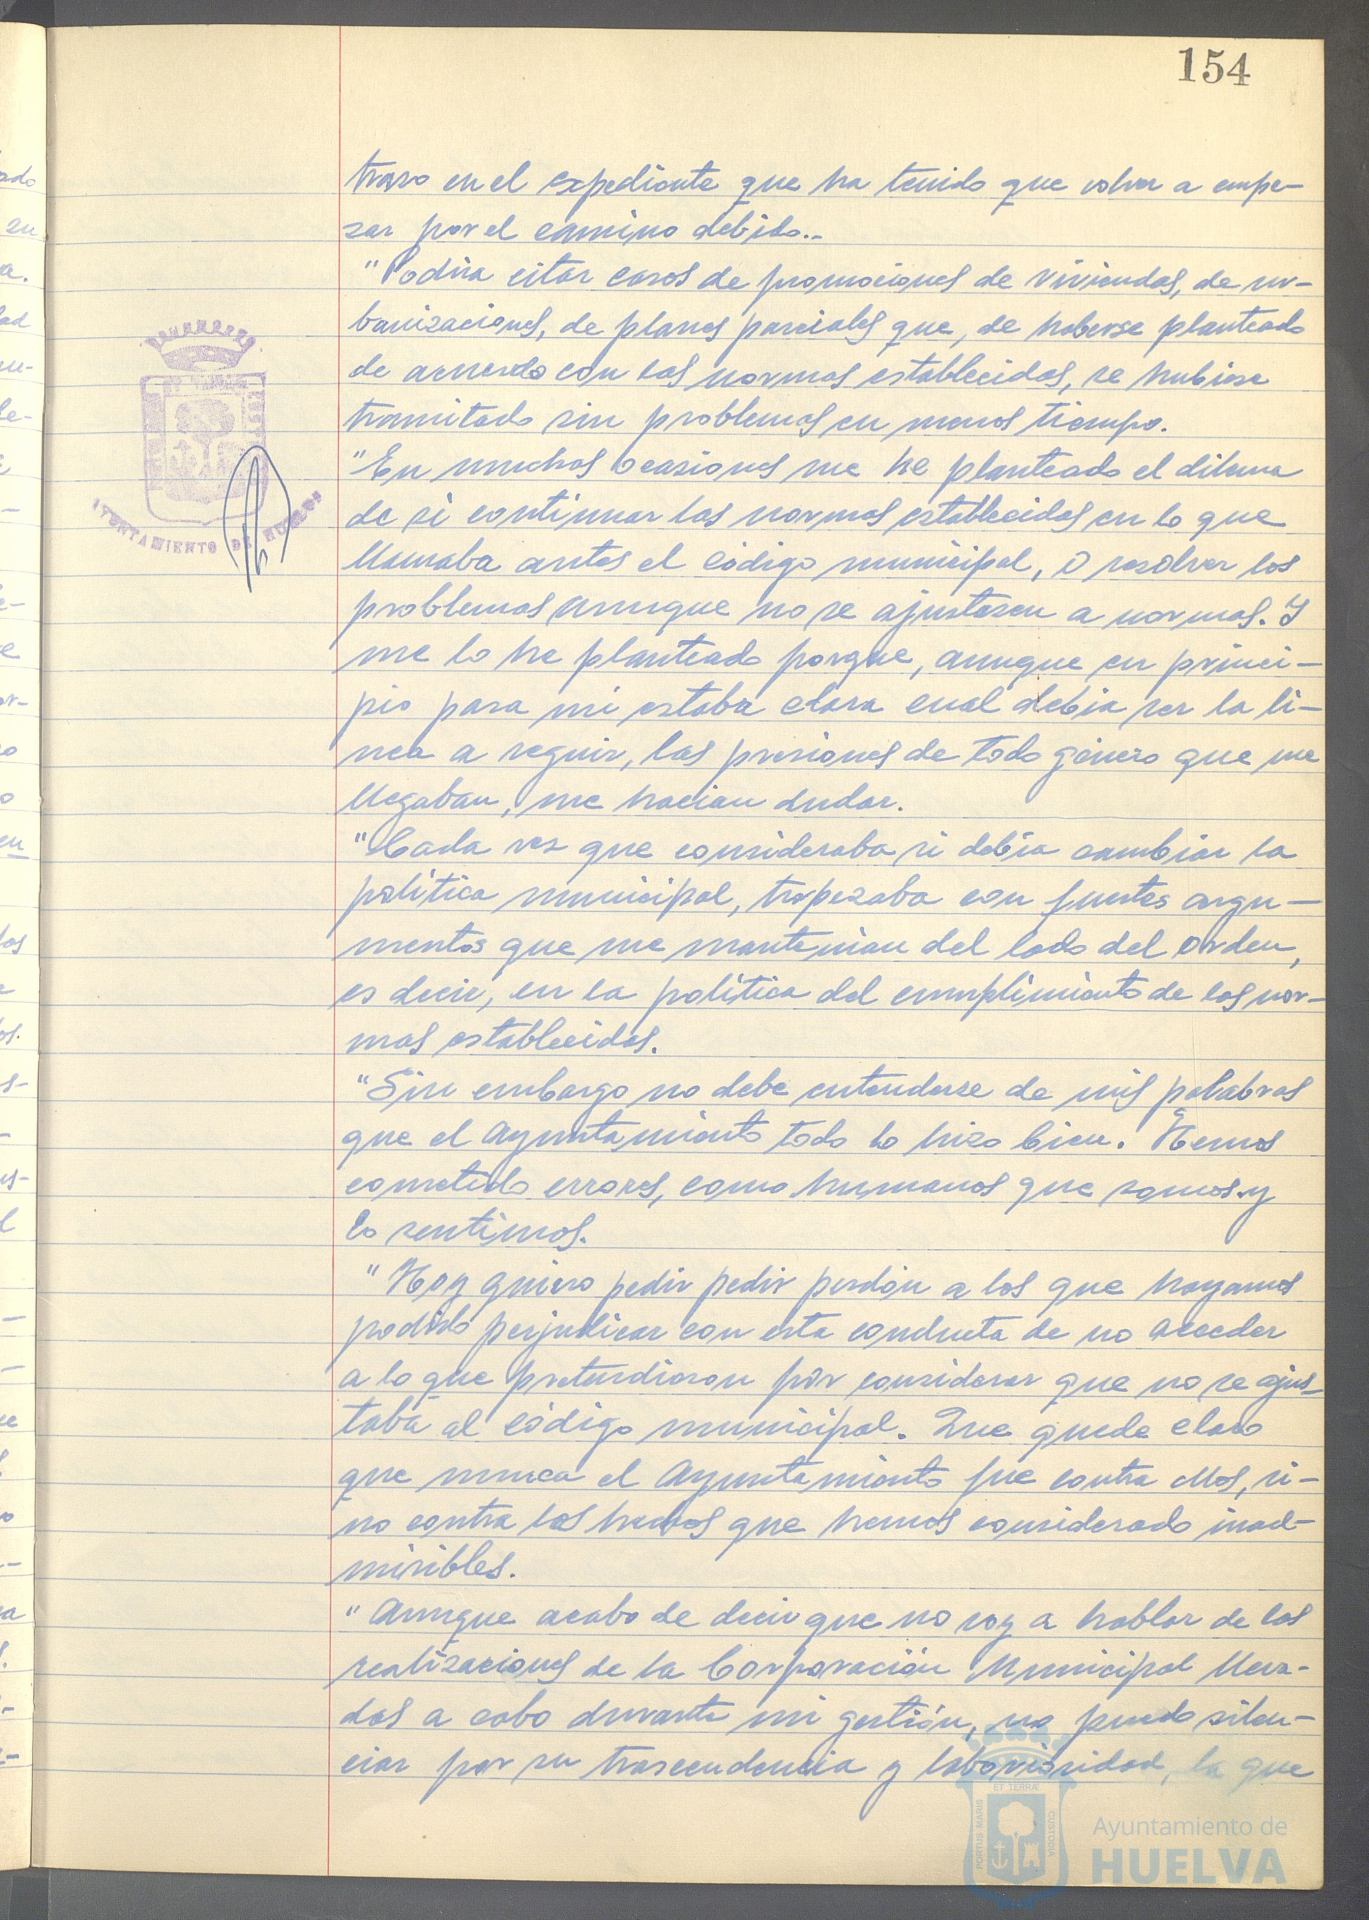 154
traso en el expediente que ha tenido que volver a empe-
zar por el camino debido..
"Podría citar casos de promociones de viviendas, de ur-
banizaciones, de planes parciales que, de haberse planteado
de acuerdo con las normas establecidas, se hubiese
tramitado sin problemas en menos tiempo.
"En muchas ocasiones me he planteado el dilema
de si continuar las normas establecidas en lo que
llamaba antes el código municipal, o resolver los
problemas aunque no se ajustasen a normas. Y
me lo he planteado porque, aunque en princi-
pio para mi estaba clara cual debía ser la lí-
nea a seguir, las presiones de todo género que me
llegaban, me hacían dudar.
"Cada vez que consideraba si debía cambiar la
política municipal, tropezaba con fuertes argu-
mentos que me mantenían del lado del orden,
es decir, en la política del cumplimiento de las nor-
mas establecidas.
"Sin embargo no debe entenderse de mis palabras
que el Ayuntamiento todo lo hizo bien. Hemos
cometido errores, como humanos que somos y
lo sentimos.
"Hoy quiero pedir pedir perdón a los que hayamos
podido perjudicar con esta conducta de no acceder
a lo que pretendieron por considerar que no se ajus-
taba al código municipal. Que quede claro
que nunca el Ayuntamiento fue contra ellos, si-
no contra los hechos que hemos considerado inad-
misibles.
"Aunque acabo de decir que no voy a hablar de las
realizaciones de la Corporación Municipal lleva-
das a cabo durante mi gestión, no puedo silen-
ciar por su trascendencia y laboriosidad, la que
AYUNTAMIENTO DE HUELVA
PORTUS MARIS
ET TERRAE
CUSTODIA
Ayuntamiento de
HUELVA